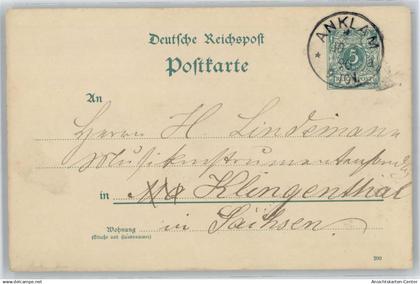 Deutsche Reichspost
Postkarte
ANKLAM
5
An
Herrn H. Lindemann
in Klingenthal
in Sachsen.
Wohnung
(Straße und Hausnummer)
200
www.ansichtskarten-center.de